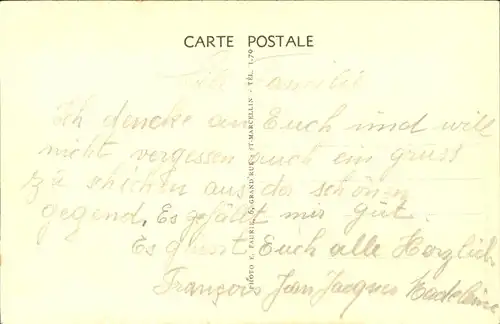 CARTE POSTALE
Familie
Ich dencke an Euch und will
nicht vergessen auch ein gruss
zu shicken aus der schönen
gegend. Es gefällt mir gut.
Es grüsst Euch alle Herzlich
François Jean Jacques Madeleine
PHOTO E. FAURIE, 6, GRAND'RUE, ST-MARCELLIN - TÉL. 1.70